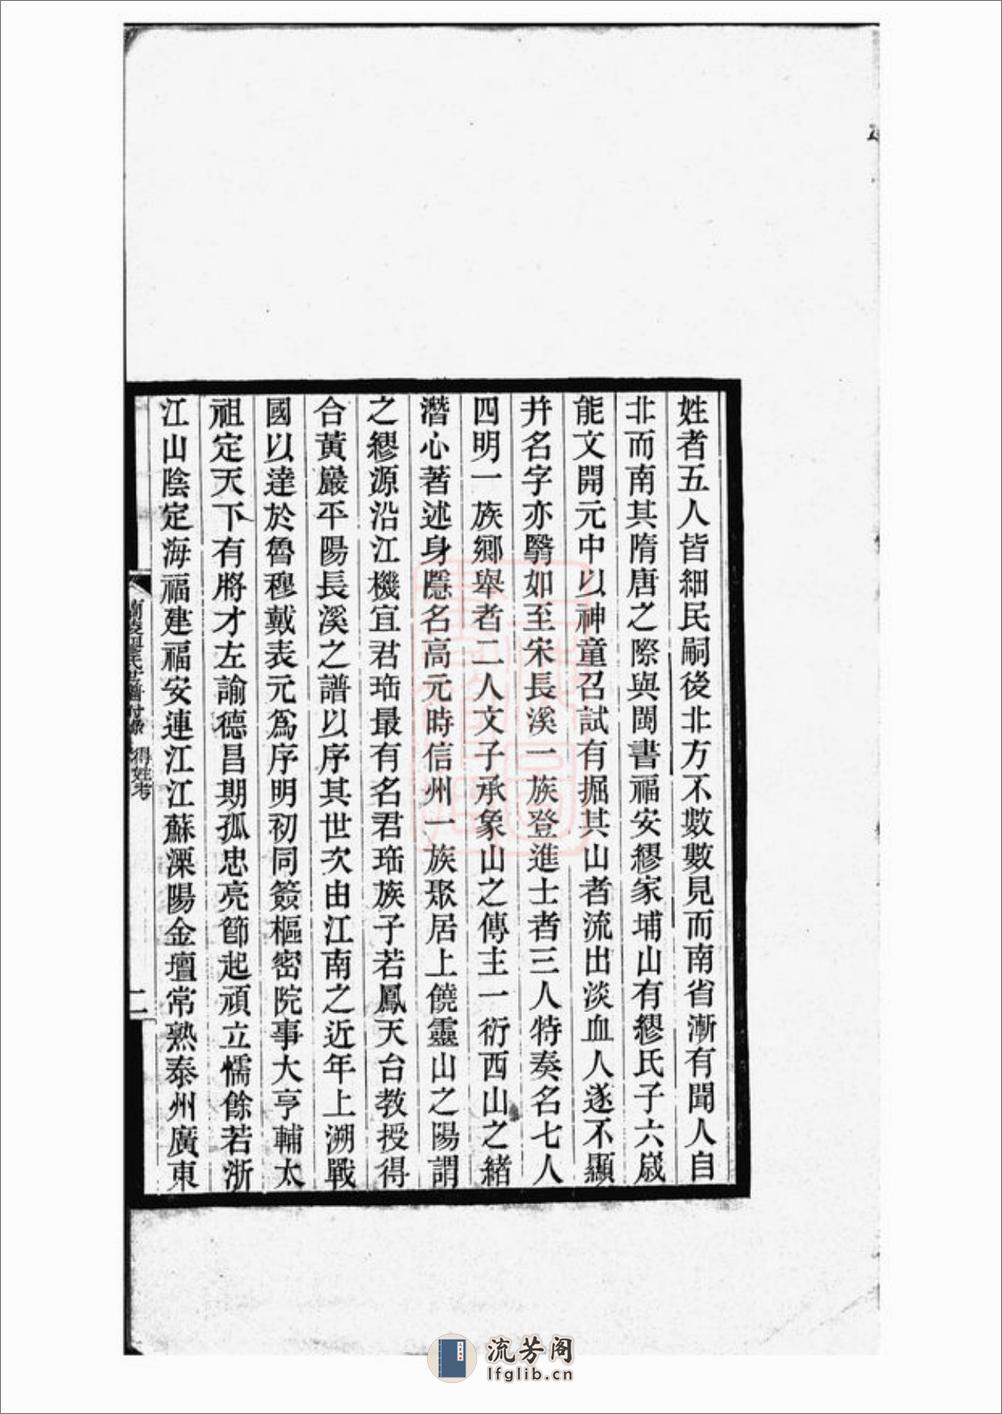 姓者五人皆細民嗣後北方不數數見而南省漸有聞人自
北而南其隋唐之際與閩書福安繆家埔山有繆氏子六歲
能文開元中以神童召試有掘其山者流出淡血人遂不顯
并名字亦翳如至宋長溪一族登進士者三人特奏名七人
四明一族鄉舉者二人文子承象山之傳主一衍西山之緒
潛心著述身隱名高元時信州一族聚居上饒靈山之陽謂
之繆源沿江機宜君珤最有名君珤族子若鳳天台教授得
合黃巖平陽長溪之譜以序其世次由江南之近年上溯戰
國以達於魯穆戴表元爲序明初同簽樞密院事大亨輔太
祖定天下有將才左諭德昌期孤忠亮節起頑立懦餘若浙
江山陰定海福建福安連江江蘇溧陽金壇常熟泰州廣東
蘭陵繆氏世譜付錄 得姓考
二
流芳阁
lfglib.cn